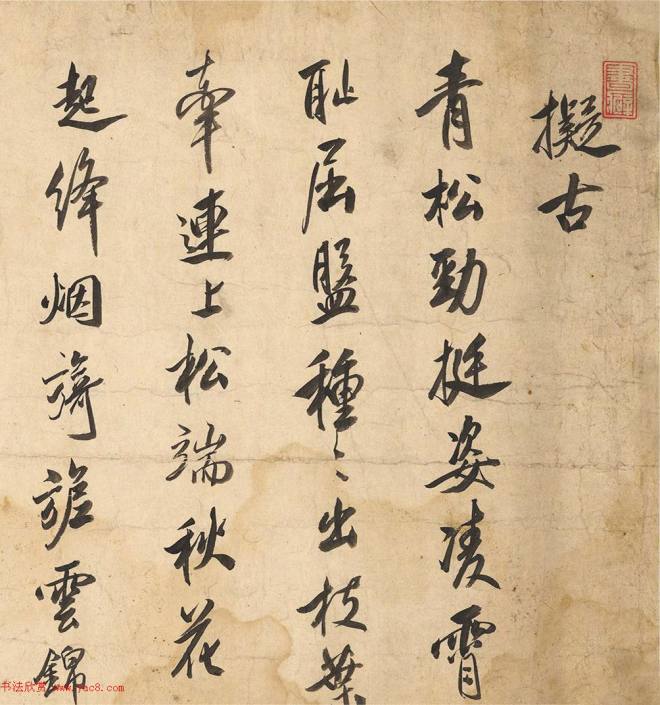 擬古
青松勁挺姿凌霄
耻屈盤種〻出枝葉
牽連上松端秋花
起絳烟旖旎雲錦
书法欣赏 www.yac8.com